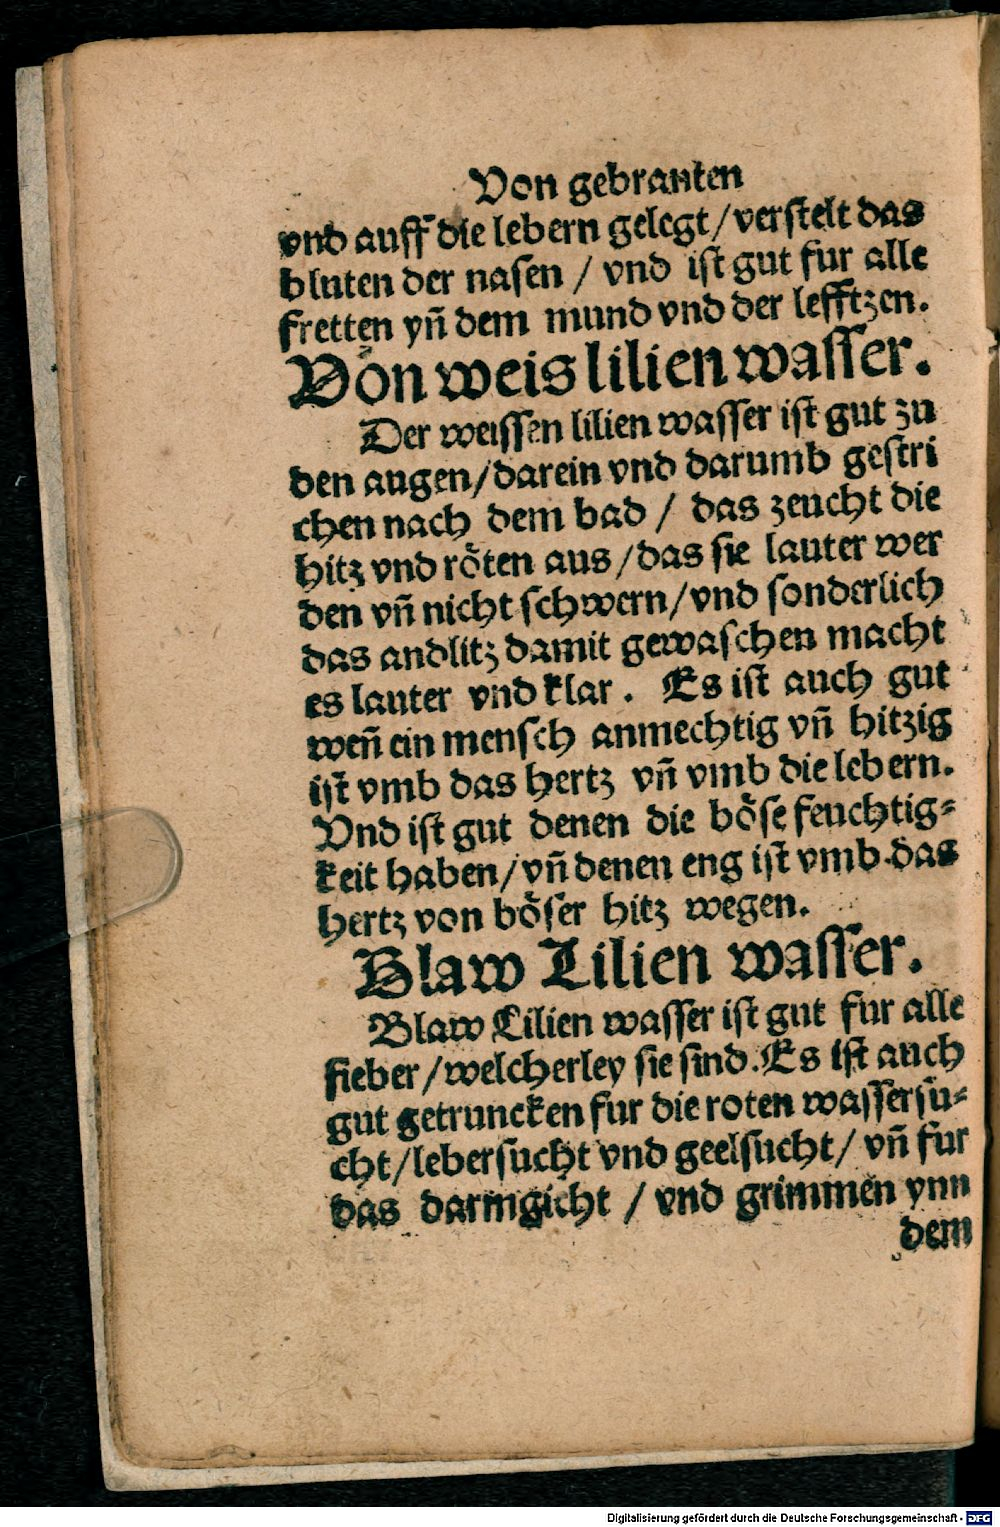 Von gebranten
vnd auff die lebern gelegt/verstelt das
bluten der nasen / vnd ist gut fur alle
fretten yñ dem mund vnd der lefftzen.
Von weis lilien wasser.
Der weissen lilien wasser ist gut zu
den augen/darein vnd darumb gestri
chen nach dem bad / das zeucht die
hitz vnd röten aus/das sie lauter wer
den vñ nicht schwern/vnd sonderlich
das andlitz damit gewaschen macht
es lauter vnd klar. Es ist auch gut
weñ ein mensch anmechtig vñ hitzig
ist vmb das hertz vñ vmb die lebern.
Vnd ist gut denen die böse feuchtig⸗
keit haben/vñ denen eng ist vmb das
hertz von böser hitz wegen.
Blaw Lilien wasser.
Blaw Lilien wasser ist gut fur alle
fieber/welcherley sie sind. Es ist auch
gut getruncken fur die roten wassersu⸗
cht/lebersucht vnd geelsucht/ vñ fur
das darmgicht / vnd grimmen ynn
dem
Digitalisierung gefördert durch die Deutsche Forschungsgemeinschaft - DFG